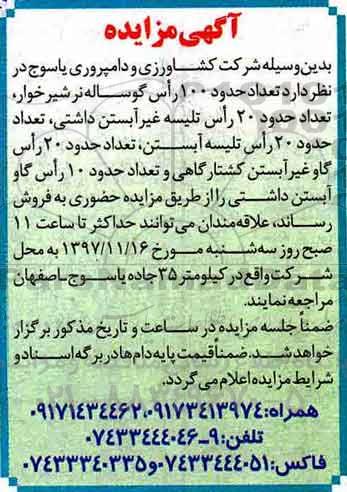 آگهی مزایده
بدین وسیله شرکت کشاورزی و دامپروری یاسوج در
نظر دارد تعداد حدود ۱۰۰ رأس گوساله نر شیرخوار،
تعداد حدود ۲۰ رأس تلیسه غیرآبستن داشتی، تعداد
حدود ۲۰ رأس تلیسه آبستن، تعداد حدود ۲۰ رأس
گاو غیرآبستن کشتارگاهی و تعداد حدود ۱۰ رأس گاو
آبستن داشتی را از طریق مزایده حضوری به فروش
رساند، علاقه‌مندان می‌توانند حداکثر تا ساعت ۱۱
صبح روز سه‌شنبه مورخ ۱۳۹۷/۱۱/۱۶ به محل
شرکت واقع در کیلومتر ۳۵ جاده یاسوج-اصفهان
مراجعه نمایند.
ضمناً جلسه مزایده در ساعت و تاریخ مذکور برگزار
خواهد شد. ضمناً قیمت پایه دام‌ها در برگه اسناد و
شرایط مزایده اعلام می‌گردد.
همراه: ۰۹۱۷۳۴۱۳۹۷۴، ۰۹۱۷۱۴۳۴۴۶۲
تلفن: ۹-۰۷۴۳۳۴۴۴۰۴۶
فاکس: ۰۷۴۳۳۴۴۴۰۵۱ و ۰۷۴۳۳۳۴۰۳۳۵